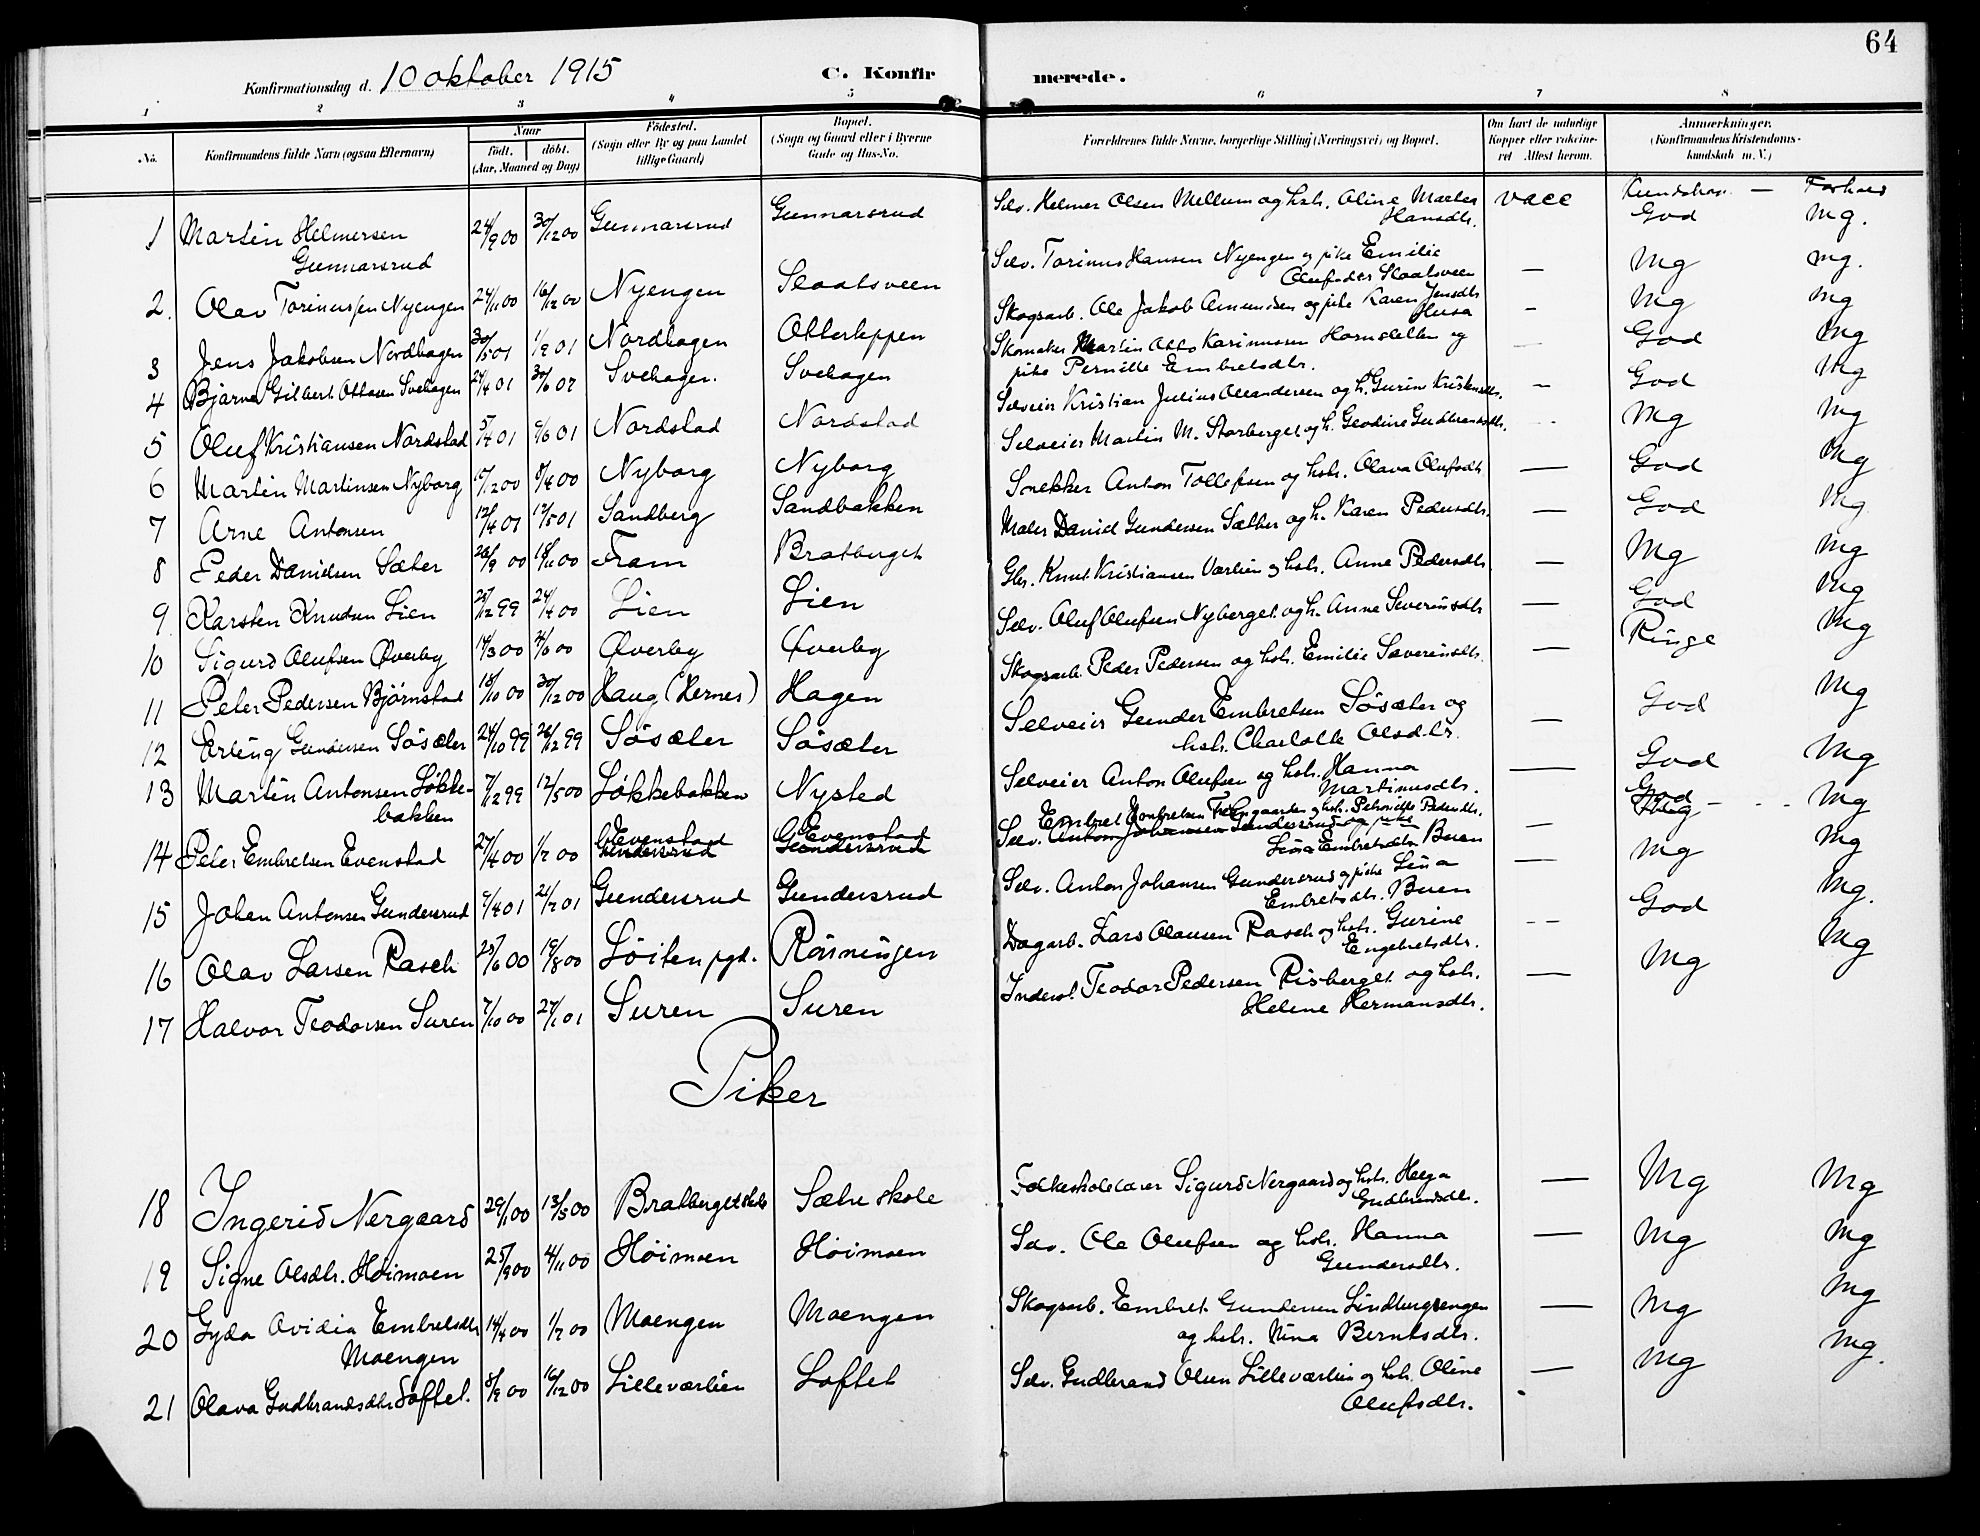 64
Konfirmationsdag d. 10 oktober 1915
C. Konfirmerede.
1 2 3 4 5 6 7 8
No.
Konfirmandens fulde Navn (ogsaa Efternavn)
Naar
født. døbt.
(Aar, Maaned og Dag)
Fødested.
(Sogn eller By og paa Landet tillige Gaard)
Bopæl.
(Sogn og Gaard eller i Byerne Gade og Hus-No.
Forældrenes fulde Navne, borgerlige Stilling (Næringsvei) og Bopæl.
Om havt de naturlige Kopper eller vakcineret Attest herom.
Anmærkninger.
(Konfirmandens Kristendomskundskab m. V.)
Kundskap — Forhold
1 Martin Helmersen Gunnarsrud 24/9 00 30/12 00 Gunnarsrud Gunnarsrud Selv. Helmer Olsen Mellum og hstr. Oline Martea Hansdtr. vacc God Mg.
2. Olav Torinussen Nyengen 24/11 00 16/12 00 Nyengen Slaatsveen Selv. Torinus Hansen Nyengen og pike Emilie Olufsdtr Slaatsveen — Mg Mg.
3 Jens Jakobsen Nordhagen 30/5 01 1/9 01 Nordhagen Otterteppen Skogsarb. Ole Jakob Amundsen og pike Karen Jensdtr Husa - Mg Mg
4 Bjarne Gilbert Ottosen Svehagen 24/4 01 30/6 07 Svehagen. Svehagen Skomaker Martin Otto Karinusen Hornsletten og pike Pernille Embretsdtr. God Mg
5 Oluf Kristiansen Nordstad 5/4 01 9/6 01 Nordstad Nordstad Selveier Kristian Julius Oleandersen og h. Gurine Kristensdtr. — God Mg
6 Martin Martinsen Nyborg 17/12 00 8/4 00 Nyborg Nyborg Selveier Martin M. Storberget og h. Geodine Gudbrandsdtr. Mg Mg
7 Arne Antonsen 12/4 01 17/5 01 Sandberg Sandbakken Snekker Anton Tollefsen og hstr. Olava Olufsdtr — God Mg
8 Peder Danielsen Sæter 26/9 00 18/11 00 Fram Bratberget Maler Daniel Gundersen Sæther og h. Karen Pedersdtr. — God Mg
9 Karsten Knudsen Lien 25/12 99 24/4 00 Lien Lien Gbr. Knut Kristiansen Værlien og hstr. Anne Pedersdtr — Mg Mg
10 Sigurd Olufsen Øverby 14/3 00 4/6 00 Øverby Øverby Selv. Oluf Olufsen Nyberget og h. Anne Severinsdtr — God Mg
11 Peter Pedersen Bjørnstad 18/10 00 30/12 00 Haug (Hernes) Hagen Skogsarb. Peder Pedersen og hstr. Emilie Severinsdtr. — Ringe Mg
12 Erling Gundersen Søsæter 24/10 99 26/12 99 Søsæter Søsæter Selveier Gunder Embretsen Søsæter og hstr. Charlotte Olsdtr. — God Mg
13 Martin Antonsen Løkkebakken 7/12 99 12/5 00 Løkkebakken Nysted Selveier Anton Olufsen og hstr. Hanna Martinusdtr. — God Mg
14 Peter Embretsen Evenstad 27/4 00 1/7 00 Evenstad Gundersrud Evenstad Gundersrud Embret Embretsen og hstr. Petronille Pedersdtr. Selv. Anton Johansen Gundersrud og pike Lina Embretsdtr Buen — God Mg Mg
15 Johan Antonsen Gundersrud 9/4 01 21/7 01 Gundersrud Gundersrud Selv. Anton Johansen Gundersrud og pike Lina Embretsdtr. Buen — Mg Mg
16 Olav Larsen Rasch 25/6 00 19/8 00 Løiten pgd. Røsningen Dagarb. Lars Olausen Rasch og hstr. Gurine Engebretsdtr. -- God Mg.
17 Halvor Teodorsen Suren 7/10 00 27/1 01 Suren Suren Inderst Teodor Pedersen Risberget og hstr. Helene Hermansdtr. — Mg Mg
Piker
18 Ingerid Nergaard 29/1 00 13/5 00 Bratberget skole Sætre skole Folkeskolelærer Sigurd Nergaard og hstr. Helga Gudbrandsdtr. — Mg Mg
19 Signe Olsdtr. Høimoen 25/9 00 4/11 00 Høimoen Høimoen Selv. Ole Olufsen og hstr. Hanna Gundersdtr. — Mg Mg
20 Gyda Ovidia Embretsdtr Moengen 14/4 00 1/7 00 Moengen Moengen Skogsarb. Embret Gundersen Lindbergsengen og hstr. Nina Berntsdtr. — Mg Mg
21 Olava Gudbrandsdtr Loftet. 8/9 00 16/12 00 Lilleværlien Loftet Selv. Gudbrand Olsen Lilleværlien og hstr. Oline Olufsdtr. — Mg Mg.